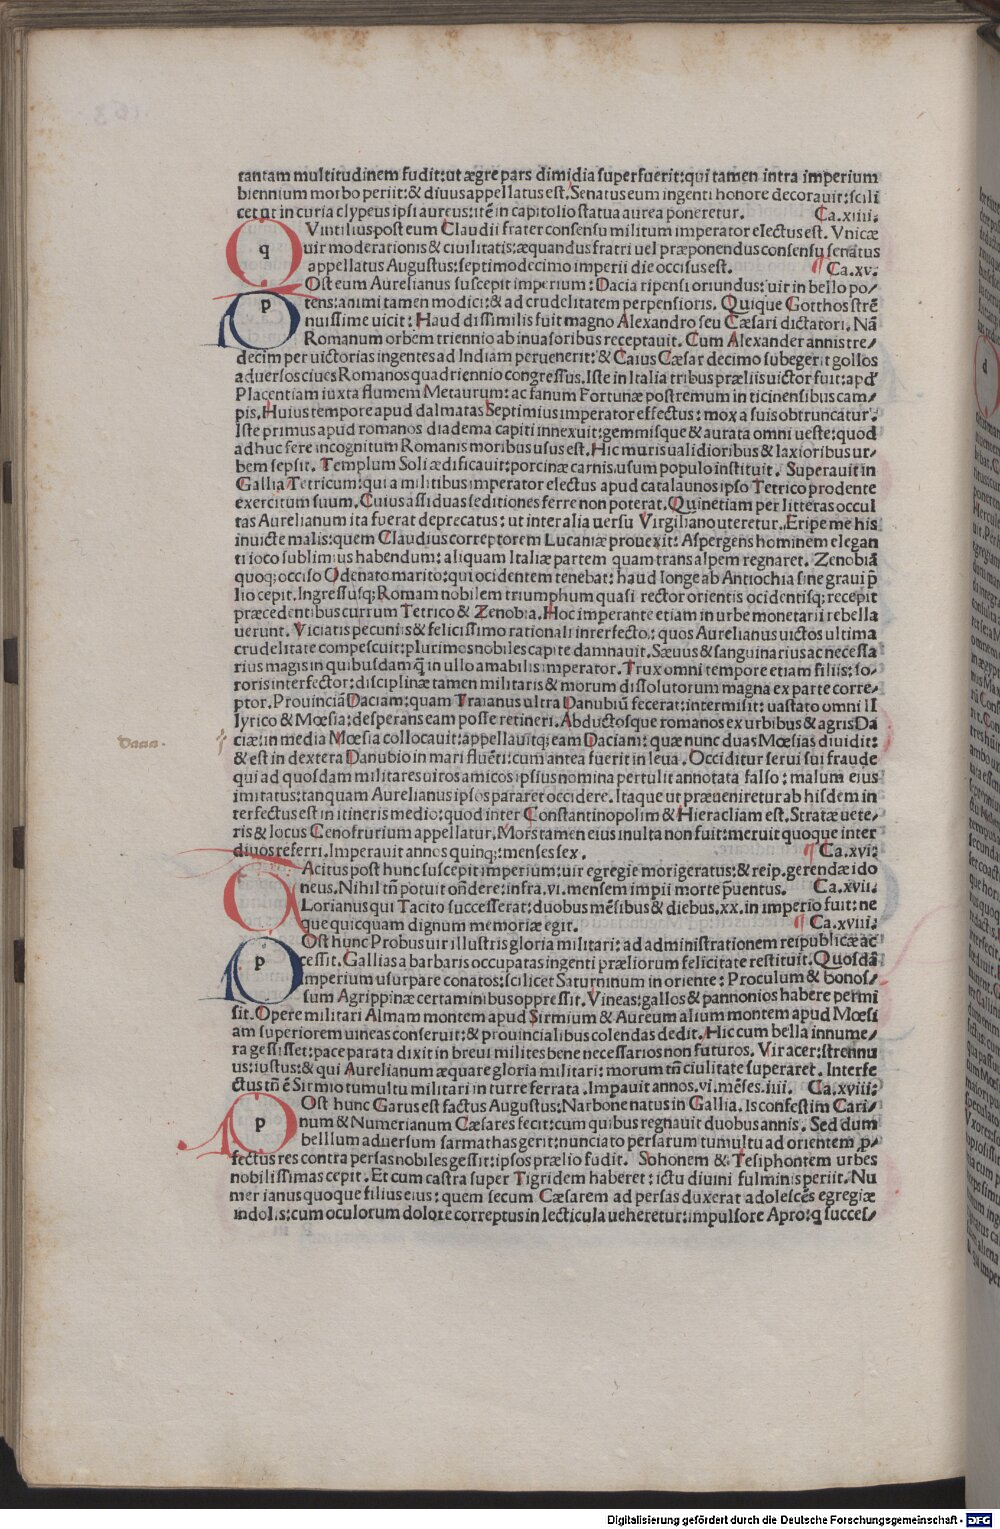 tantam multitudinem fudit:ut ægre pars dimidia superfuerit:qui tamen intra imperium
biennium morbo periit:& diuus appellatus est. Senatus eum ingenti honore decorauit:scili
cet ut in curia clypeus ipsi aureus:itē in capitolio statua aurea poneretur. Ca.xiiii.
q Vintilius post eum Claudii frater consensu militum imperator electus est. Vnicæ
uir moderationis & ciuilitatis:æquandus fratri uel præponendus consensu senatus
appellatus Augustus:septimodecimo imperii die occisus est. Ca.xv.
p Ost eum Aurelianus suscepit imperium: Dacia ripensi oriundus:uir in bello po/
tens:animi tamen modici:& ad crudelitatem perpensioris. Quique Gotthos strē
nuissime uicit: Haud dissimilis fuit magno Alexandro seu Cæsari dictatori. Nā
Romanum orbem triennio ab inuasoribus receptauit. Cum Alexander annis tre/
decim per uictorias ingentes ad Indiam peruenerit:& Caius Cæsar decimo subegerit gollos
aduersos ciues Romanos quadriennio congressus. Iste in Italia tribus præliis uictor fuit:apđ
Placentiam iuxta flumem Metaurum: ac fanum Fortunæ postremum in ticinensibus cam/
pis. Huius tempore apud dalmatas Septimius imperator effectus: mox a suis obtruncatur.
Iste primus apud romanos diadema capiti innexuit:gemmisque & aurata omni ueste:quod
adhuc fere incognitum Romanis moribus usus est. Hic muris ualidioribus & laxioribus ur/
bem sepsit. Templum Soli ædificauit:porcinæ carnis usum populo instituit. Superauit in
Gallia Tetricum:qui a militibus imperator electus apud catalaunos ipso Tetrico prodente
exercitum suum. Cuius assiduas seditiones ferre non poterat. Quinetiam per litteras occul
tas Aurelianum ita fuerat deprecatus: ut inter alia uersu Virgiliano uteretur. Eripe me his
inuicte malis:quem Claudius correptorem Lucaniæ prouexit: Aspergens hominem elegan
ti ioco sublimius habendum: aliquam Italiæ partem quam trans alpem regnaret. Zenobiā
quoq; occiso Odenato marito:qui ocidentem tenebat: haud longe ab Antiochia sine graui p̄
lio cepit. Ingressusq; Romam nobilem triumphum quasi rector orientis ocidentisq; recepit
præcedentibus currum Tetrico & Zenobia. Hoc imperante etiam in urbe monetarii rebella
uerunt. Viciatis pecuniis & felicissimo rationali interfecto: quos Aurelianus uictos ultima
crudelitate compescuit:plurimos nobiles capite damnauit. Sæuus & sanguinarius ac necessa
rius magis in quibusdam q̄ in ullo amabilis imperator. Trux omni tempore etiam filiis:so/
roris interfector:disciplinæ tamen militaris & morum dissolutorum magna ex parte corre/
ptor. Prouinciā Daciam:quam Traianus ultra Danubiū fecerat:intermisit: uastato omni Il
lyrico & Mœsia:desperans eam posse retineri. Abductosque romanos ex urbibus & agris Da
ciæ:in media Mœsia collocauit:appellauitq; eam Daciam: quæ nunc duas Mœsias diuidit:
& est in dextera Danubio in mari fluēti:cum antea fuerit in leua. Occiditur serui sui fraude
qui ad quosdam militares uiros amicos ipsius nomina pertulit annotata falso: malum eius
imitatus:tanquam Aurelianus ipsos pararet occidere. Itaque ut præueniretur ab hisdem in
terfectus est in itineris medio:quod inter Constantinopolim & Hieracliam est. Stratæ uete/
ris & locus Cenofrurium appellatur. Mors tamen eius inulta non fuit:meruit quoque inter
diuos referri. Imperauit annos quinq;:menses sex. Ca.xvi:
Acitus post hunc suscepit imperium:uir egregie morigeratus:& reip.gerendæ ido
neus. Nihil tñ potuit oñdere:infra.vi.mensem impii morte p̄uentus. Ca.xvii.
Lorianus qui Tacito successerat:duobus mēsibus & diebus.xx.in imperio fuit:ne
que quicquam dignum memoriæ egit. Ca.xviii:
p Ost hunc Probus uir illustris gloria militari: ad administrationem reipublicæ ac
cessit. Gallias a barbaris occupatas ingenti præliorum felicitate restituit. Quosdā
imperium usurpare conatos:scilicet Saturninum in oriente: Proculum & bonos/
sum Agrippinæ certaminibus oppressit. Vineas:gallos & pannonios habere permi
sit. Opere militari Almam montem apud Sirmium & Aureum alium montem apud Mœsi
am superiorem uineas conseruit:& prouincialibus colendas dedit. Hic cum bella innume/
ra gessisset:pace parata dixit in breui milites bene necessarios non futuros. Vir acer:strennu
us:iustus:& qui Aurelianum æquare gloria militari: morum tñ ciulitate superaret. Interfe
ctus tñ ē Sirmio tumultu militari in turre ferrata. Impauit annos.vi.mēses.iiii. Ca.xviii:
p Ost hunc Garus est factus Augustus:Narbone natus in Gallia. Is confestim Cari/
num & Numerianum Cæsares fecit:cum quibus regnauit duobus annis. Sed dum
belllum aduersum sarmathas gerit:nunciato persarum tumultu ad orientem ꝓ/
fectus res contra persas nobiles gessit:ipsos prælio fudit. Sohonem & Tesiphontem urbes
nobilissimas cepit. Et cum castra super Tigridem haberet:ictu diuini fulminis periit. Nu
merianus quoque filius eius: quem secum Cæsarem ad persas duxerat adolescēs egregiæ
indolis:cum oculorum dolore correptus in lecticula ueheretur:impulsore Apro:q succes/
Digitalisierung gefördert durch die Deutsche Forschungsgemeinschaft - DFG